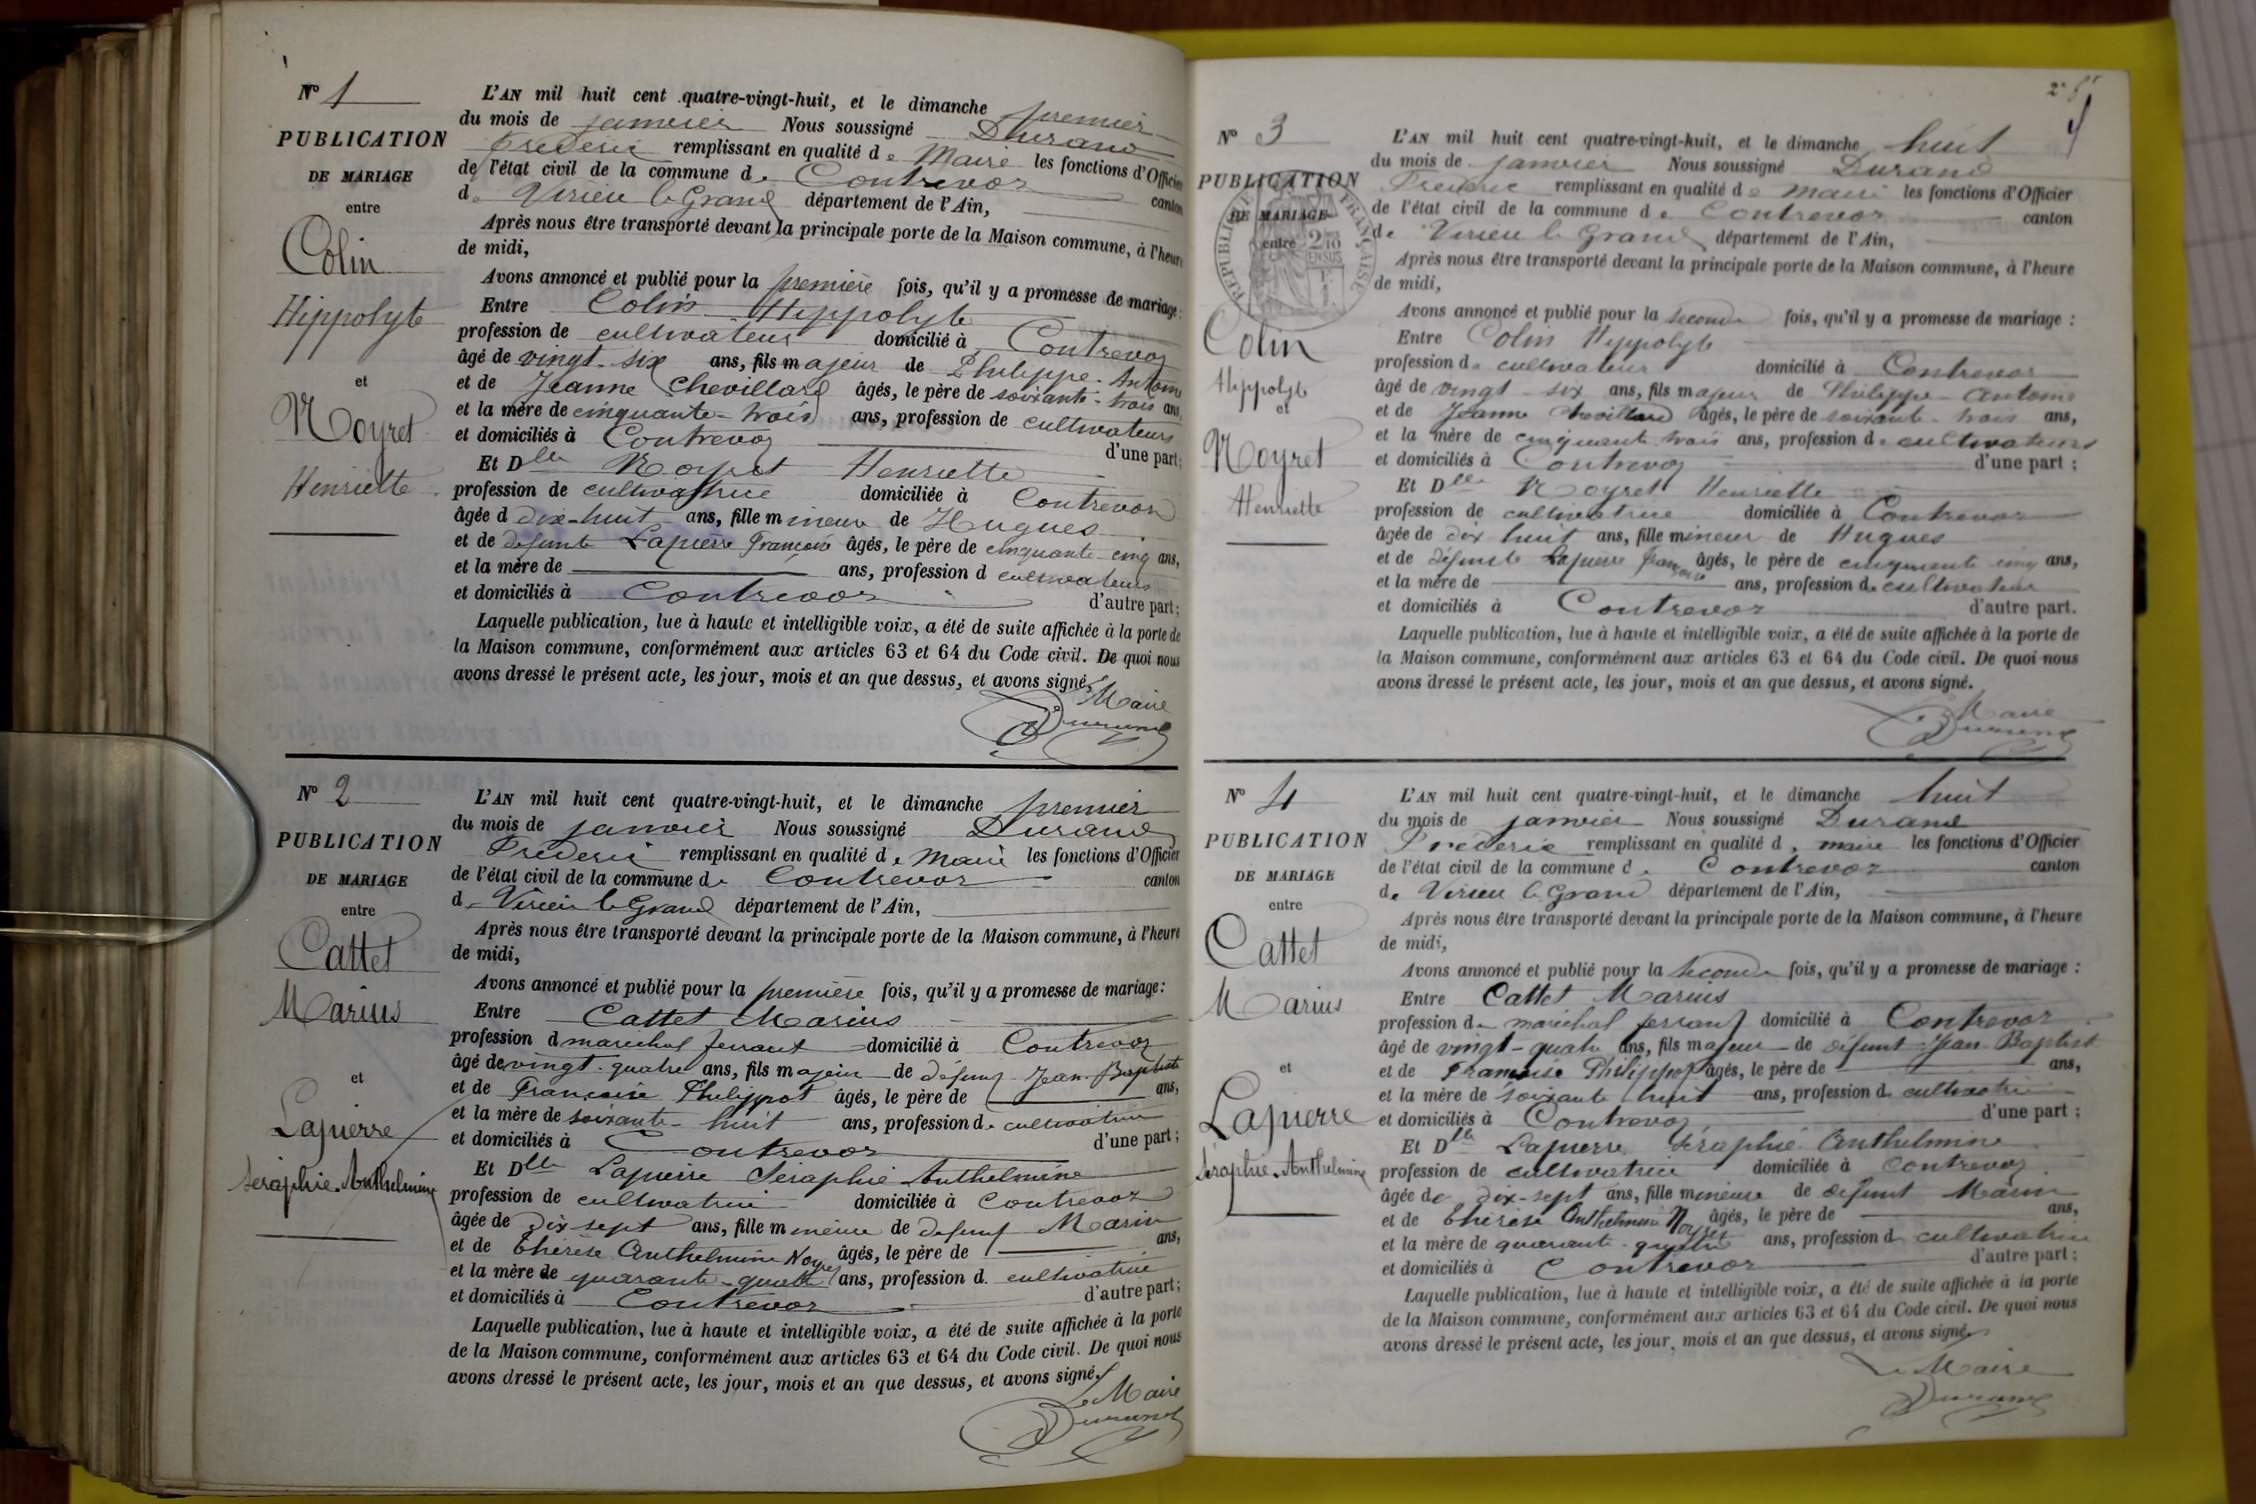 N° 1
PUBLICATION
DE MARIAGE
entre
Colin
Hippolyte
et
Noyret
Henriette
L'AN mil huit cent quatre-vingt-huit, et le dimanche premier
du mois de janvier Nous soussigné Durand
Frédéric remplissant en qualité de Maire les fonctions d'Officier
de l'état civil de la commune de Contrevoz canton
de Virieu le Grand département de l'Ain,
Après nous être transporté devant la principale porte de la Maison commune, à l'heure
de midi,
Avons annoncé et publié pour la première fois, qu'il y a promesse de mariage :
Entre Colin Hippolyte
profession de cultivateur domicilié à Contrevoz
âgé de vingt-six ans, fils majeur de Philippe-Antoine
et de Jeanne Chevillard âgés, le père de soixante-trois ans,
et la mère de cinquante-trois ans, profession de cultivateurs
et domiciliés à Contrevoz d'une part ;
Et Dlle Noyret Henriette
profession de cultivatrice domiciliée à Contrevoz
âgée d dix-huit ans, fille mineure de Hugues
et de défunte Lapierre Françoise âgés, le père de cinquante-cinq ans,
et la mère de ans, profession d cultivateurs
et domiciliés à Contrevoz d'autre part ;
Laquelle publication, lue à haute et intelligible voix, a été de suite affichée à la porte de
la Maison commune, conformément aux articles 63 et 64 du Code civil. De quoi nous
avons dressé le présent acte, les jour, mois et an que dessus, et avons signé.
Le Maire
Durand
N° 2
PUBLICATION
DE MARIAGE
entre
Cattet
Marius
et
Lapierre
Séraphie-Anthelmine
L'AN mil huit cent quatre-vingt-huit, et le dimanche premier
du mois de janvier Nous soussigné Durand
Frédéric remplissant en qualité de Maire les fonctions d'Officier
de l'état civil de la commune de Contrevoz canton
de Virieu le Grand département de l'Ain,
Après nous être transporté devant la principale porte de la Maison commune, à l'heure
de midi,
Avons annoncé et publié pour la première fois, qu'il y a promesse de mariage :
Entre Cattet Marius
profession d maréchal ferrant domicilié à Contrevoz
âgé de vingt-quatre ans, fils majeur de défunt Jean-Baptiste
et de Françoise Philippot âgés, le père de ans,
et la mère de soixante-huit ans, profession de cultivatrice
et domiciliés à Contrevoz d'une part ;
Et Dlle Lapierre Séraphie Anthelmine
profession de cultivatrice domiciliée à Contrevoz
âgée de dix sept ans, fille mineure de défunt Marin
et de Thérèse Anthelmine Noyret âgés, le père de ans,
et la mère de quarante-quatre ans, profession d. cultivatrice
et domiciliés à Contrevoz d'autre part ;
Laquelle publication, lue à haute et intelligible voix, a été de suite affichée à la porte
de la Maison commune, conformément aux articles 63 et 64 du Code civil. De quoi nous
avons dressé le présent acte, les jour, mois et an que dessus, et avons signé.
Le Maire
Durand
N° 3
PUBLICATION
DE MARIAGE
entre
RÉPUBLIQUE FRANÇAISE
2/10 EN SUS
Colin
Hippolyte
et
Noyret
Henriette
L'AN mil huit cent quatre-vingt-huit, et le dimanche huit
du mois de janvier Nous soussigné Durand
Frédéric remplissant en qualité de maire les fonctions d'Officier
de l'état civil de la commune de Contrevoz canton
de Virieu le Grand département de l'Ain,
Après nous être transporté devant la principale porte de la Maison commune, à l'heure
de midi,
Avons annoncé et publié pour la seconde fois, qu'il y a promesse de mariage :
Entre Colin Hippolyte
profession de cultivateur domicilié à Contrevoz
âgé de vingt-six ans, fils majeur de Philippe-Antoine
et de Jeanne Chevillard âgés, le père de soixante-trois ans,
et la mère de cinquante trois ans, profession de cultivateurs
et domiciliés à Contrevoz d'une part ;
Et Dlle Noyret Henriette
profession de cultivatrice domiciliée à Contrevoz
âgée de dix huit ans, fille mineur de Hugues
et de défunte Lapierre Françoise âgés, le père de cinquante cinq ans,
et la mère de ans, profession de cultivateur
et domiciliés à Contrevoz d'autre part.
Laquelle publication, lue à haute et intelligible voix, a été de suite affichée à la porte de
la Maison commune, conformément aux articles 63 et 64 du Code civil. De quoi nous
avons dressé le présent acte, les jour, mois et an que dessus, et avons signé.
Le Maire
Durand
N° 4
PUBLICATION
DE MARIAGE
entre
Cattet
Marius
et
Lapierre
Séraphie-Anthelmine
L'AN mil huit cent quatre-vingt-huit, et le dimanche huit
du mois de janvier Nous soussigné Durand
Frédéric remplissant en qualité de maire les fonctions d'Officier
de l'état civil de la commune de Contrevoz canton
de Virieu le Grand département de l'Ain,
Après nous être transporté devant la principale porte de la Maison commune, à l'heure
de midi,
Avons annoncé et publié pour la seconde fois, qu'il y a promesse de mariage :
Entre Cattet Marius
profession de maréchal ferrant domicilié à Contrevoz
âgé de vingt-quatre ans, fils majeur de défunt Jean Baptiste
et de Françoise Philippot âgés, le père de ans,
et la mère de soixante huit ans, profession de cultivatrice
et domiciliés à Contrevoz d'une part ;
Et Dlle Lapierre Séraphie Anthelmine
profession de cultivatrice domiciliée à Contrevoz
âgée de dix-sept ans, fille mineure de défunt Marin
et de Thérèse Anthelmine Noyret âgés, le père de ans,
et la mère de quarante-quatre ans, profession d cultivatrice
et domiciliés à Contrevoz d'autre part ;
Laquelle publication, lue à haute et intelligible voix, a été de suite affichée à la porte
de la Maison commune, conformément aux articles 63 et 64 du Code civil. De quoi nous
avons dressé le présent acte, les jour, mois et an que dessus, et avons signé.
Le Maire
Durand